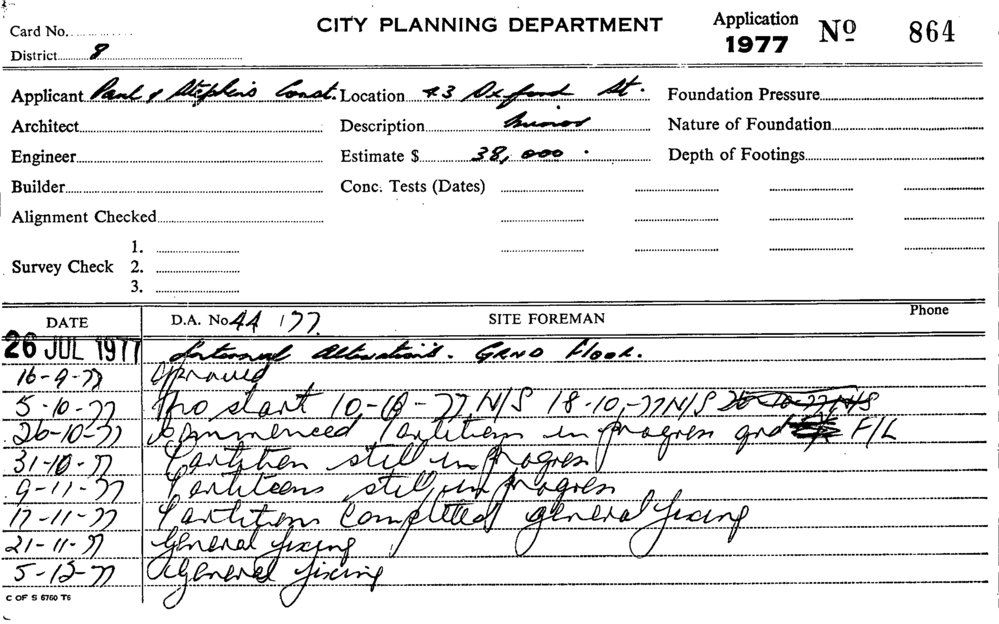 CITY PLANNING DEPARTMENT
Application 1977 Nº 864
Card No.
District 8
Applicant Paul & Stephens Const. Location 43 Oxford St. Foundation Pressure
Architect Description Minor Nature of Foundation
Engineer Estimate $ 38,000. Depth of Footings
Builder Conc. Tests (Dates)
Alignment Checked
1.
Survey Check 2.
3.
DATE D.A. No. 44/77. SITE FOREMAN Phone
26 JUL 1977 Internal Alterations. GRND Floor.
16-9-77 Aproved
5-10-77 No start 10-10-77 N/S 18-10-77 N/S 26-10-77 N/S
26-10-77 Commenced Partitions in progress grd F/L
31-10-77 Partition still in progress
9-11-77 Partitions still in progress
17-11-77 Partitions Completed general fixing
21-11-77 General fixing
5-12-77 General fixing
C OF S 6760 T6